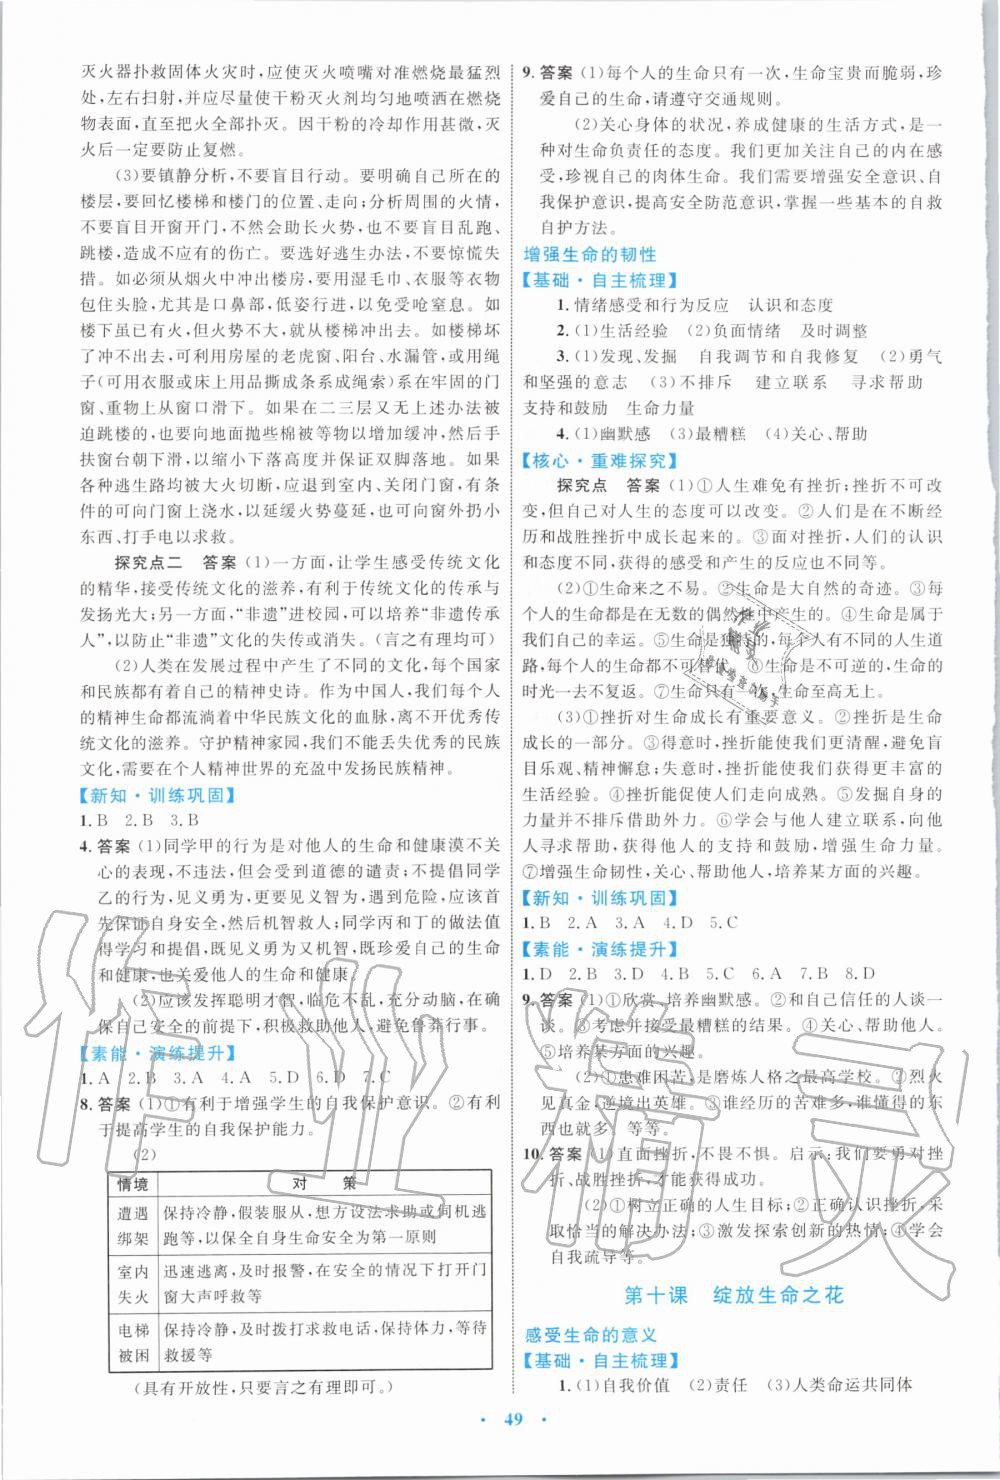 灭火器扑救固体火灾时,应使灭火喷嘴对准燃烧最猛烈
处,左右扫射,并应尽量使干粉灭火剂均匀地喷洒在燃烧
物表面,直至把火全部扑灭。因干粉的冷却作用甚微,灭
火后一定要防止复燃。
(3)要镇静分析,不要盲目行动。要明确自己所在的
楼层,要回忆楼梯和楼门的位置、走向;分析周围的火情,
不要盲目开窗开门,不然会助长火势,也不要盲目乱跑、
跳楼,造成不应有的伤亡。要选好逃生办法,不要惊慌失
措。如必须从烟火中冲出楼房,要用湿毛巾、衣服等衣物
包住头脸,尤其是口鼻部,低姿行进,以免受呛窒息。如
楼下虽已有火,但火势不大,就从楼梯冲出去。如楼梯坏
了,可利用房屋的老虎窗、阳台、水漏管,或用绳
子(可用衣服或床上用品撕成条系成绳索)系在牢固的门
窗、重物上从窗口滑下。如果在二三层又无上述办法被
迫跳楼的,也要向地面抛些棉被等物以增加缓冲,然后手
扶窗台往下滑,以缩小下落高度并保证双脚落地。如果
各种逃生路均被大火切断,应退到室内、关闭门窗,有条
件的可向门窗上浇水,以延缓火势蔓延,也可向窗外扔小
东西、打手电以求救。
探究点二 答案 (1)一方面,让学生感受传统文化
的精华,接受传统文化的滋养,有利于传统文化的传承与
发扬光大;另一方面,“非遗”进校园,可以培养“非遗传承
人”,以防止“非遗”文化的失传或消失。(言之有理均可)
(2)人类在发展过程中产生了不同的文化,每个国
家和民族都有着自己的精神史诗。作为中国人,我们个
人的精神生命都流淌着中华民族文化的血脉,离不开优秀传
统文化的滋养。守护精神家园,我们不能丢失优秀的民族
文化,需要在个人精神世界的充盈中发扬民族精神。
【新知·训练巩固】
1.B 2.B 3.B
4.答案 (1)同学甲的行为是对他人的生命和健康漠不关
心的表现,不违法,但会受到道德的谴责;不提倡同学
乙的行为,见义勇为,遇到危险,应该首
先保证自身安全,然后机智救人;同学丙和丁的做法值
得学习和提倡,既见义勇为又机智,既珍爱自己的生命
和健康,也关爱他人的生命和健康。
(2)应该发挥聪明才智,临危不乱,充分动脑,在确
保自己安全的前提下,积极救助他人,避免鲁莽行事。
【素能·演练提升】
1.A 2.B 3.A 4.A 5.D 6.D 7.C
8.答案 (1)①有利于增强学生的自我保护意识。②有利
于提高学生的自我保护能力。
(2)
情境 对 策
遭遇绑架 保持冷静,假装服从,想方设法求助或伺机逃
跑等,以保全自身生命安全为第一原则
室内失火 迅速逃离,及时报警,在安全的情况下打开门
窗大声呼救等
电梯被困 保持冷静,及时拨打求救电话,保持体力,等待
救援等
(具有开放性,只要言之有理即可。)
9.答案 (1)每个人的生命只有一次,生命宝贵而脆弱,珍
爱自己的生命,请遵守交通规则。
(2)关心身体的状况,养成健康的生活方式,是一
种对生命负责任的态度。我们更加关注自己的内在感
受,珍视自己的肉体生命。我们需要增强安全意识、自
我保护意识,提高安全防范意识,掌握一些基本的自救
自护方法。
增强生命的韧性
【基础·自主梳理】
1.情绪感受和行为反应 认识和态度
2.(1)生活经验 (2)负面情绪 及时调整
3.(1)发现、发掘 自我调节和自我修复 (2)勇气
和坚强的意志 (3)不排斥 建立联系 寻求帮助
支持和鼓励 生命力量
4.(1)幽默感 (3)最糟糕 (4)关心、帮助
【核心·重难探究】
探究点 答案 (1)①人生难免有挫折;挫折不可改
变,但人生的态度可以改变。②人们是在不断经历
和战胜挫折中成长起来的。③面对挫折,人们的认识
和态度不同,获得的感受和产生的反应也不同等。
(2)①生命来之不易。②生命是大自然的奇迹。③每
个人的生命都是在无数的偶然性中产生的。④生命是属于
我们自己的幸运。⑤生命是独特的,每个人有不同的人生道
路,每个人的生命都不可替代。⑥生命是不可逆的,生命的
时光一去不复返。⑦生命只有一次,生命至高无上。
(3)①挫折对生命成长有重要意义。挫折是生命
成长的一部分。③得意时,挫折能使我们更清醒,避免盲
目乐观、精神懈怠;失意时,挫折能使我们获得更丰富的
生活经验。④挫折能促使人们走向成熟。⑤发掘自身的力
量并不排斥借助外力。⑥学会与他人建立联系,向他
人寻求帮助,获得他人的支持和鼓励,增强生命力量。
⑦增强生命韧性,关心、帮助他人,培养某方面的兴趣。
【新知·训练巩固】
1.B 2.A 3.A 4.D 5.C
【素能·演练提升】
1.D 2.B 3.D 4.D 5.C 6.A 7.B 8.D
9.答案 (1)①欣赏、培养幽默感。②和自己信任的人谈一
谈。③考虑并接受最糟糕的结果。④关心、帮助他人。
⑤培养某方面的兴趣。
(2)①患难困苦,是磨炼人格之最高学校。②烈火
见真金,逆境出英雄。③谁经历的苦难多,谁懂得的东
西也就多 等等。
10.答案 (1)直面挫折,不畏惧。启示:我们要不怕挫
折、战胜挫折,才能获得成功。
(2)①树立正确的人生目标;②正确认识挫折,采
取恰当的解决办法;③激发探索创新的热情;④学会
自我疏导等。
第十课 绽放生命之花
感受生命的意义
【基础·自主梳理】
1.(1)自我价值 (2)责任 (3)人类命运共同体
· 49 ·
作业精灵